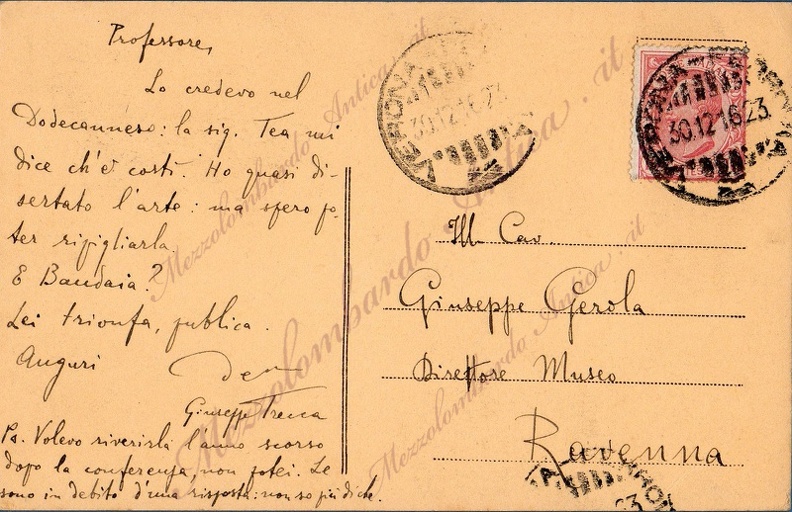 Professore,
Lo credevo nel
Dodecanneso: la sig. Tea mi
dice ch'è costì. Ho quasi di-
sertato l'arte: ma spero po-
ter ripigliarla.
E Baudaia?
Lei trionfa, pubblica.
Auguri
Giuseppe Trecca
Ps. Volevo riverirla l'anno scorso
dopo la conferenza, non potei. Le
sono in debito d'una risposta: non so più dichi.
VERONA
30.12.16.23
VERONA
30.12.16.23
Ill. Cav.
Giuseppe Gerola
Direttore Museo
Ravenna
23
Mezzolombardo Antica.it
Mezzolombardo Antica.it
Mezzolombardo Antica.it